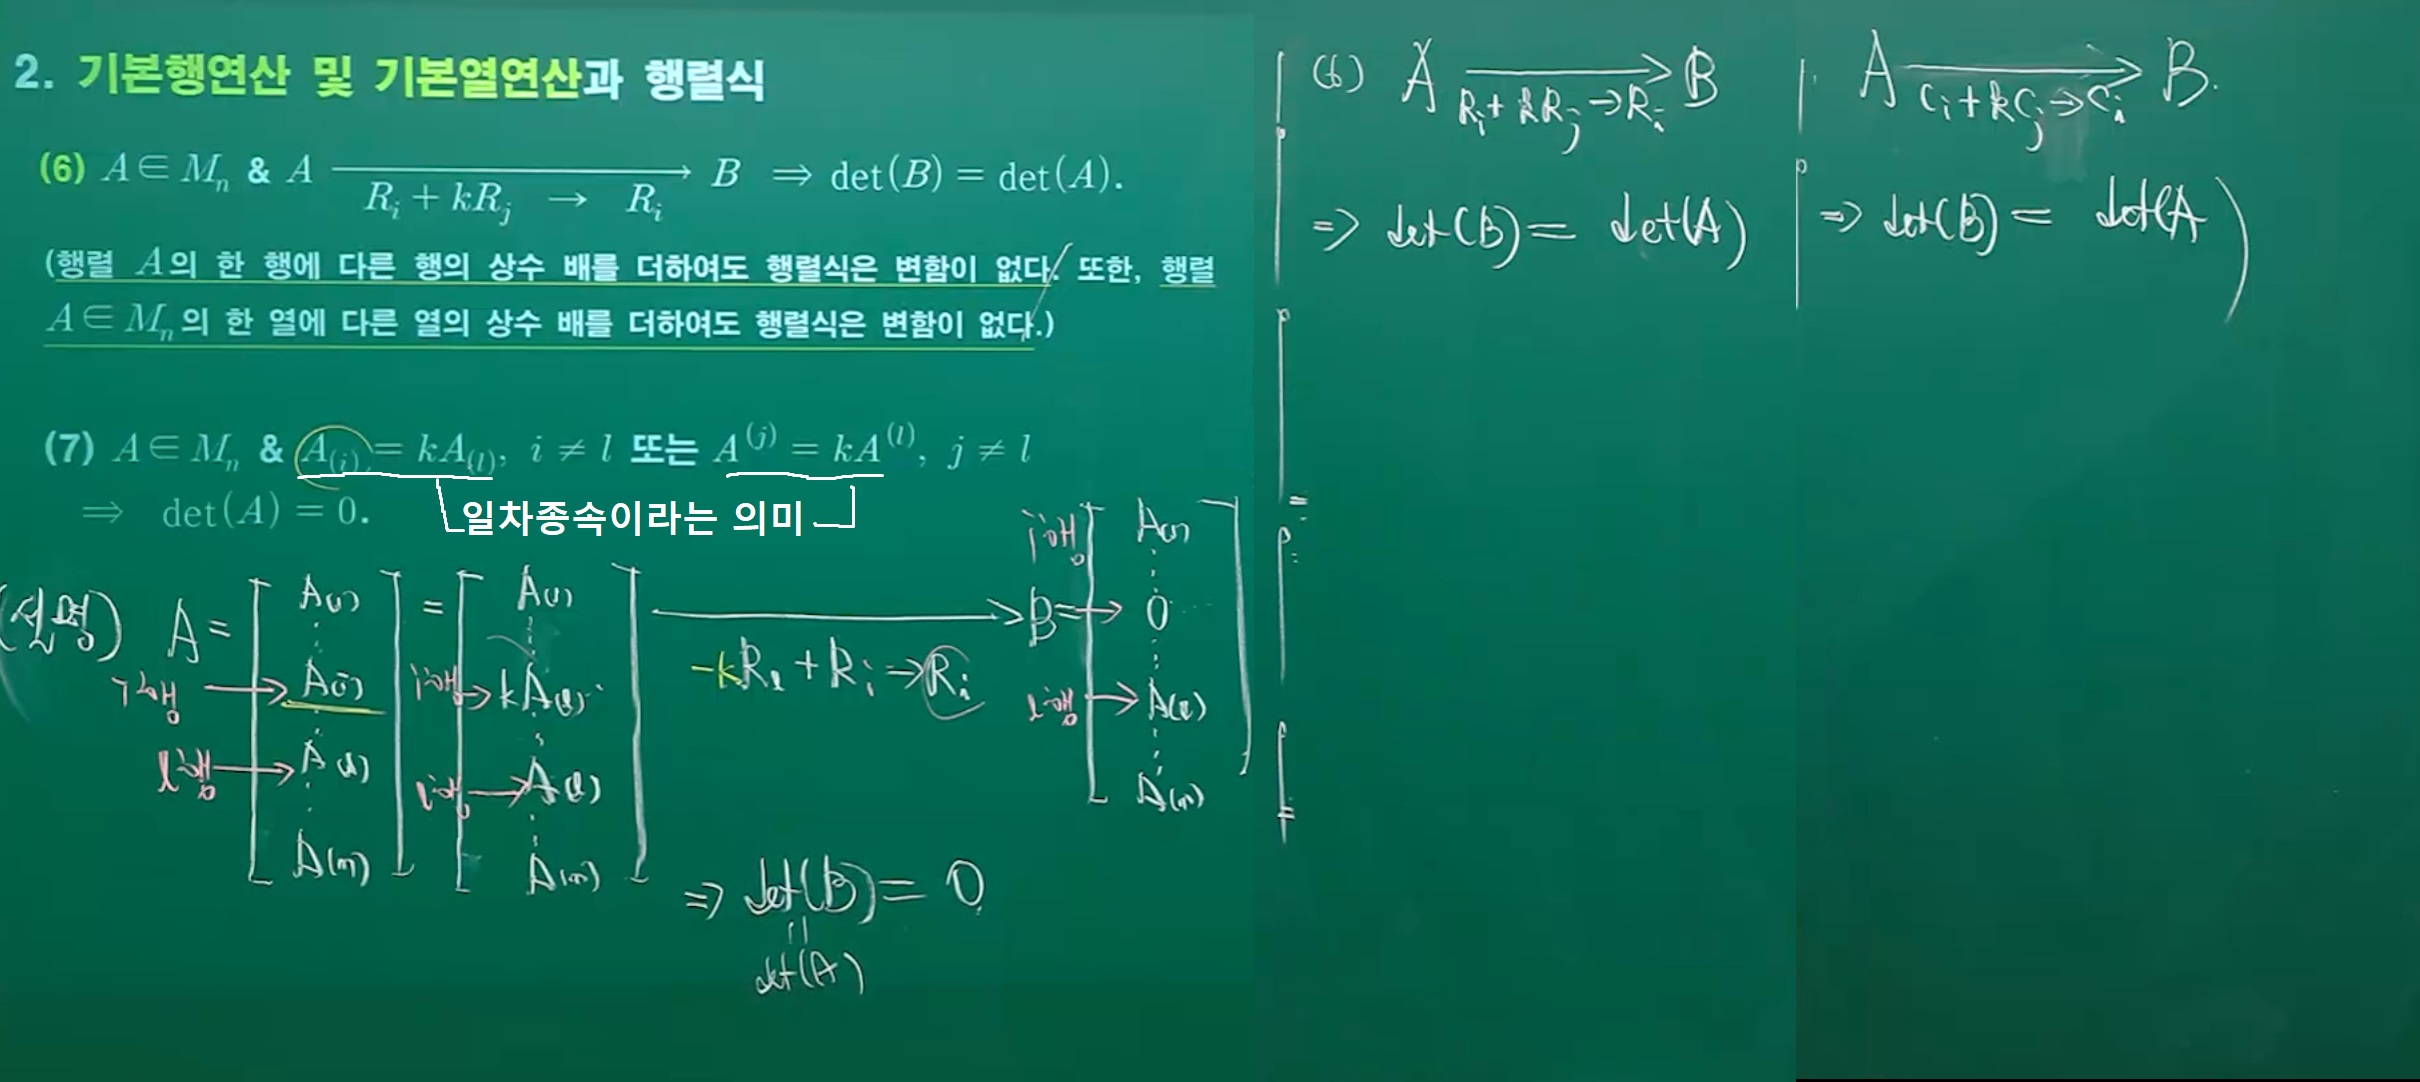 2. 기본행연산 및 기본열연산과 행렬식
(6) A∈Mₙ & A ⟶ B ⇒ det(B) = det(A).
Rᵢ + kRⱼ → Rᵢ
(행렬 A의 한 행에 다른 행의 상수 배를 더하여도 행렬식은 변함이 없다. 또한, 행렬
A∈Mₙ의 한 열에 다른 열의 상수 배를 더하여도 행렬식은 변함이 없다.)
(7) A∈Mₙ & A₍ᵢ₎ = kA₍ₗ₎, i ≠ l 또는 A⁽ʲ⁾ = kA⁽ˡ⁾, j ≠ l
⇒ det(A) = 0.
일차종속이라는 의미
(설명) A = [ A(1) ⋮ A(i) ⋮ A(l) ⋮ A(n) ] = [ A(1) ⋮ kA(l) ⋮ A(l) ⋮ A(n) ] ⟶ B = [ A(1) ⋮ 0 ⋮ A(l) ⋮ A(n) ]
i행 →
l행 →
i행 →
l행 →
-kRₗ + Rᵢ → Rᵢ
i행
l행 →
⇒ det(B) = 0
||
det(A)
(6) A ⟶ B
Rᵢ + kRⱼ → Rᵢ
⇒ det(B) = det(A)
A ⟶ B.
Cᵢ + kCⱼ → Cᵢ
⇒ det(B) = det(A)